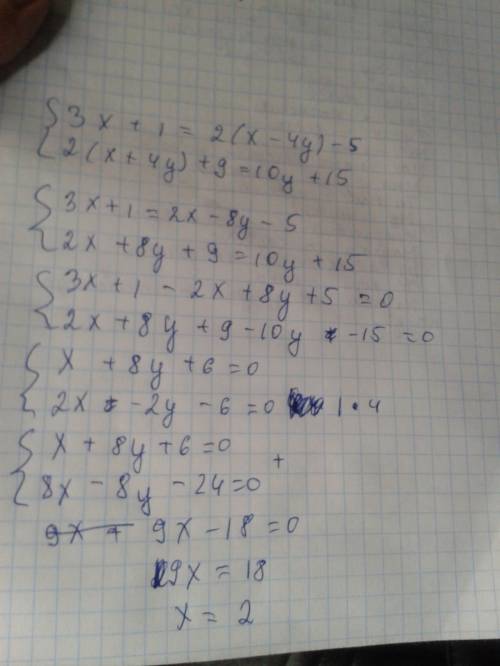 { 3x + 1 = 2(x - 4y) - 5
2(x + 4y) + 9 = 10y + 15
{ 3x + 1 = 2x - 8y - 5
2x + 8y + 9 = 10y + 15
{ 3x + 1 - 2x + 8y + 5 = 0
2x + 8y + 9 - 10y - 15 = 0
{ x + 8y + 6 = 0
2x - 2y - 6 = 0 | · 4
{ x + 8y + 6 = 0
+
8x - 8y - 24 = 0
9x - 18 = 0
9x = 18
x = 2